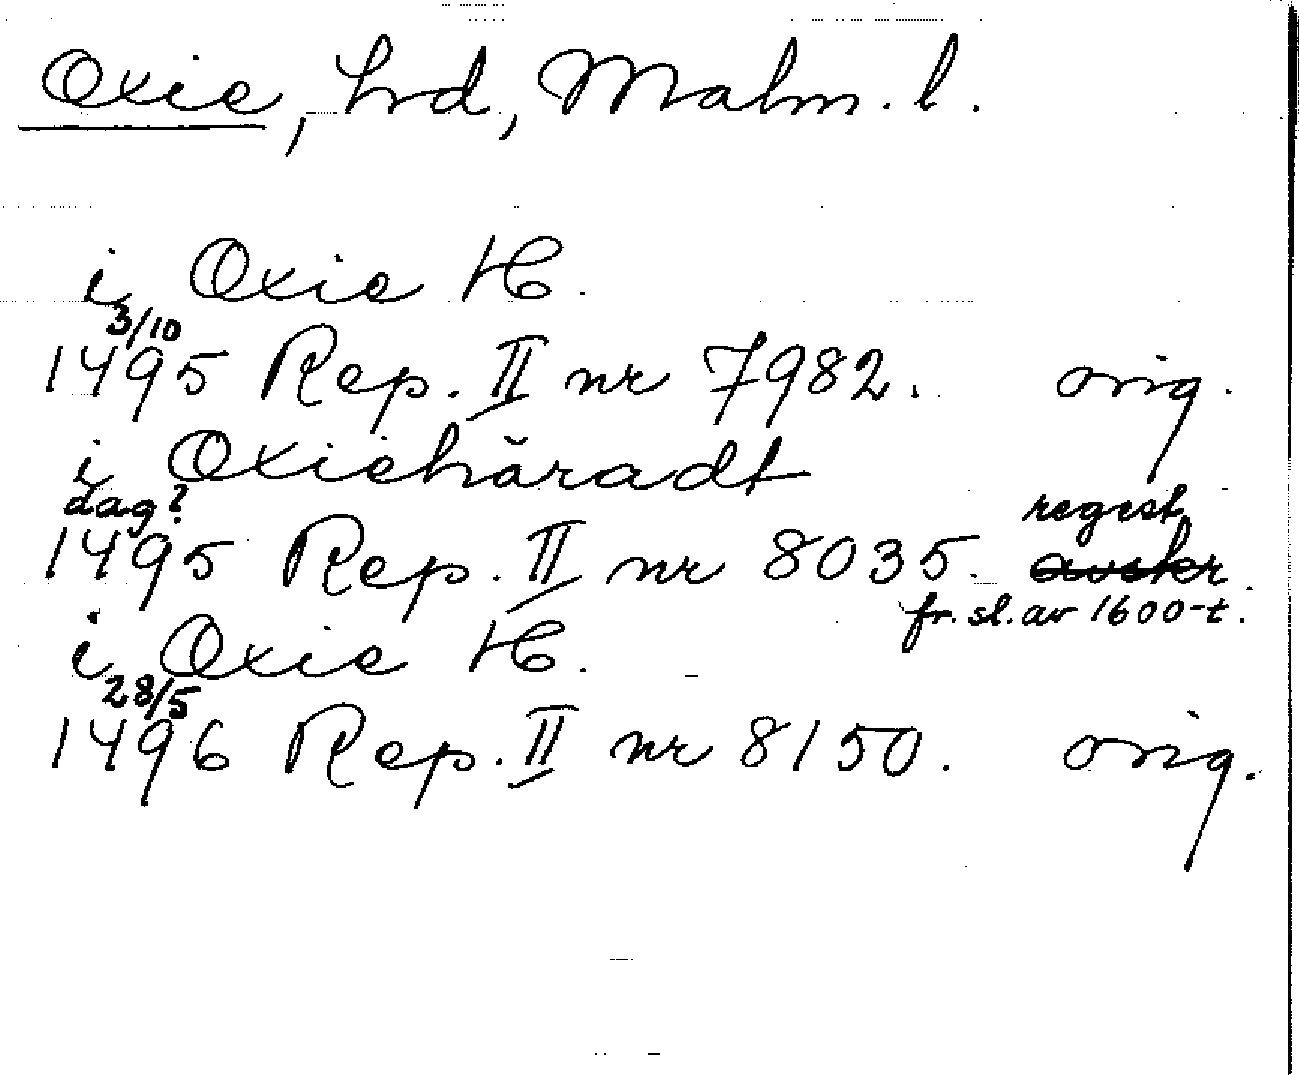 Oxie, hrd, Malm. l.
i Oxie H.
3/10
1495 Rep. II nr 7982. orig.
i Oxiehäradt
dag? regest
1495 Rep. II nr 8035. avskr.
fr. sl. av 1600-t.
i Oxie H.
28/5
1496 Rep. II nr 8150. orig.